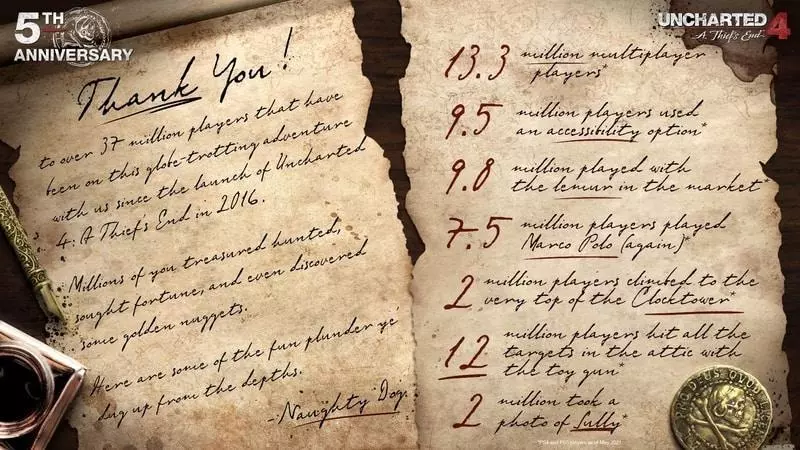 5TH
ANNIVERSARY
Thank You!
to over 37 million players that have
been on this globe-trotting adventure
with us since the launch of Uncharted
4: A Thief's End in 2016.
Millions of you treasured hunted,
sought fortune, and even discovered
some golden nuggets.
Here are some of the fun plunder ye'
dug up from the depths.
- Naughty Dog
UNCHARTED 4
A Thief's End
13.3 million multiplayer
players*
9.5 million players used
an accessibility option*
9.8 million played with
the lemur in the market*
7.5 million players played
Marco Polo (again)*
2 million players climbed to the
very top of the Clocktower*
12 million players hit all the
targets in the attic with
the toy gun*
2 million took a
photo of Sully*
*PS4 and PS5 players as of May 2021
DEUS QUOD